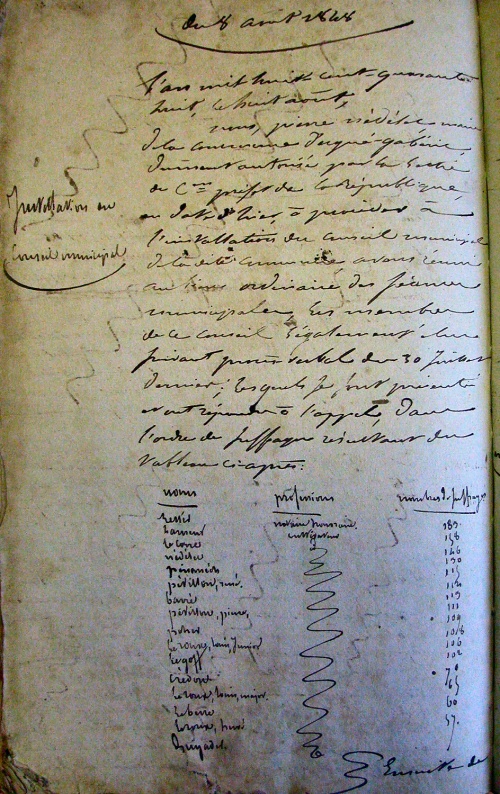 du 8 août 1848
Installation du
Conseil municipal
L'an mil huit cent quarante
huit, le huit août,
nous, pierre nédélec maire
de la commune d'ergué-gabéric
dument autorisé par la lettre
du C.en préfet de la République,
en date d'hier, à procéder à
l'installation du conseil municipal
de la dite commune, avons réuni
au lieu ordinaire des séances
municipales, les membres
de ce conseil également élus
suivant procès verbal du 30 juillet
dernier; lesquels se sont présentés
et ont répondu à l'appel, dans
l'ordre de suffrages résultant du
tableau ci-après:
noms professions nombres de suffrages
notaire honoraire 183.
cultivateur 158
le corre 146
nédélec 130
115
pétillon, rené. 114
113
pétillon, pierre, 111
104
le roux, louis, junior 106
le goff 102
crédou 70
le roux, louis, major. 65
le berre 60
le roux, rené 57.
Ensuite de